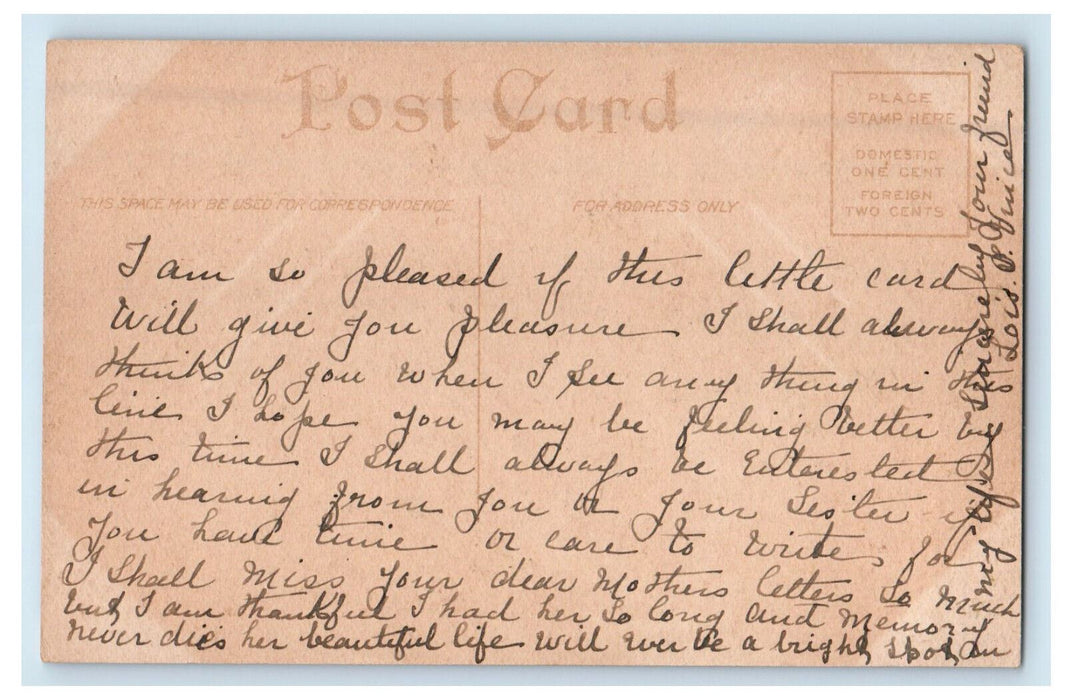 Post Card
PLACE
STAMP HERE
DOMESTIC
ONE CENT
FOREIGN
TWO CENTS
THIS SPACE MAY BE USED FOR CORRESPONDENCE
FOR ADDRESS ONLY
I am so pleased if this little card
Will give you pleasure I shall always
think of you when I see any thing in this
line I hope you may be feeling better by
this time I shall always be Enterested
in hearing from you or your Sister if
you have time or care to write, for
I shall Miss your dear Mothers letters so much
but I am thankful I had her so long and Memory
never dies her beautiful life will ever be a bright spot in
my life Sincerely Your friend
Lois. P.